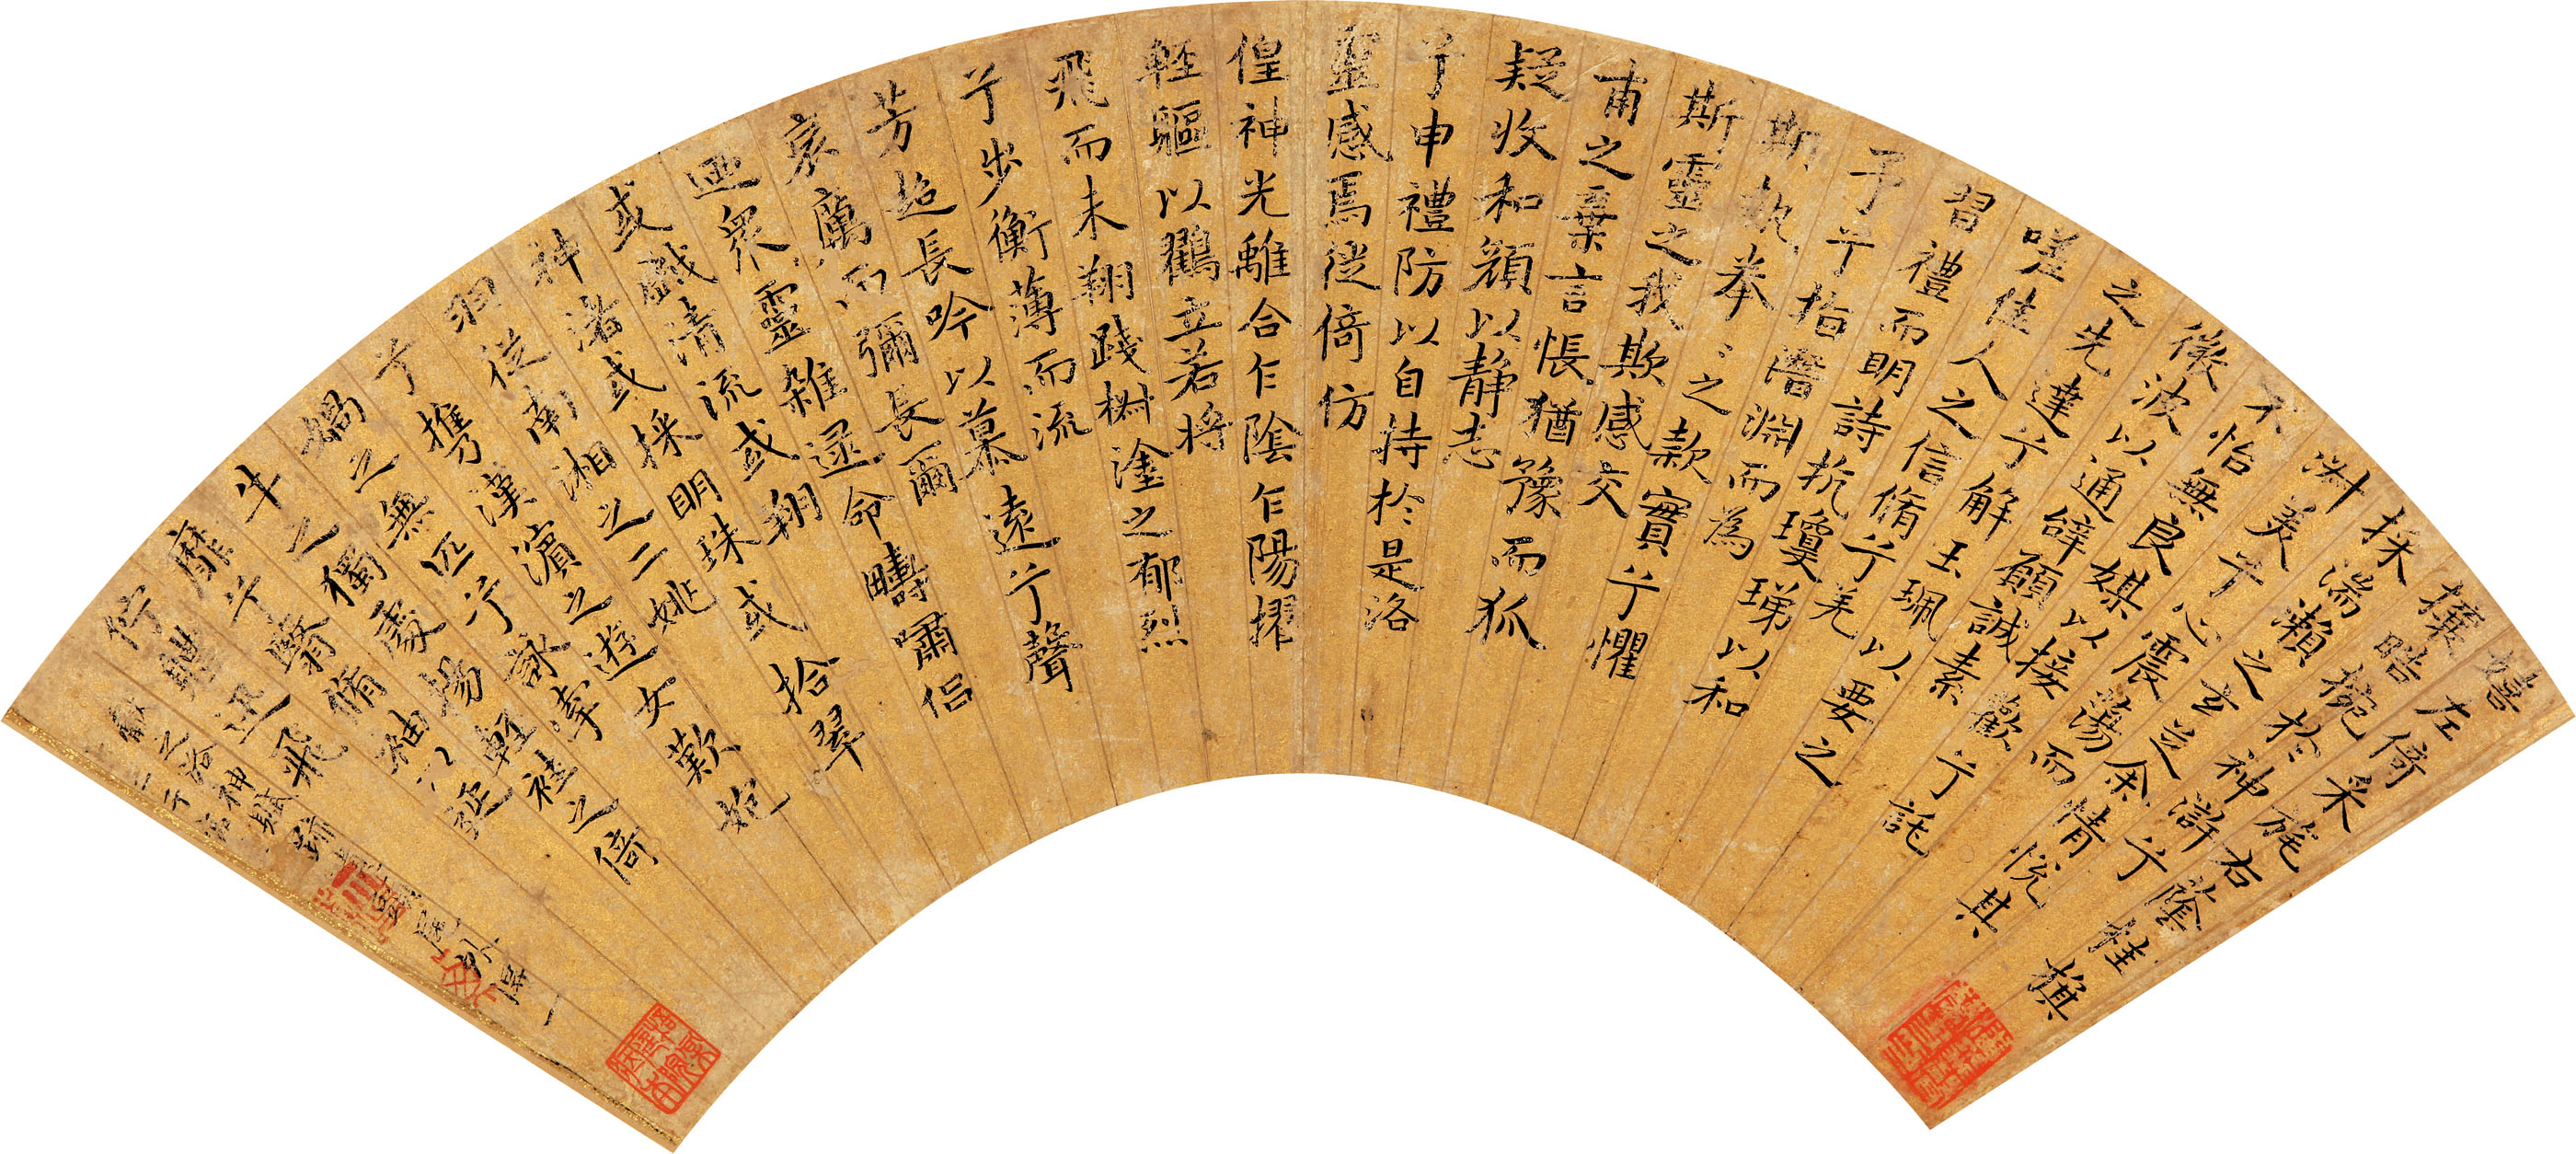 嬉左倚采旄右蔭桂旗
攘晧捥於神滸兮
採湍瀨之玄芝余情悅其
淑美兮心震蕩而
不怡無良媒以接歡兮託
微波以通辭願誠素
之先達兮解玉珮以要之
嗟佳人之信脩兮羌
習禮而明詩抗瓊珶以和
予兮指潛淵而為
斯執拳〻之款實兮懼
斯靈之我欺感交
甫之棄言悵猶豫而狐
疑收和顏以靜志
兮申禮防以自持於是洛
靈感焉徙倚仿
偟神光離合乍陰乍陽擢
輕軀以鶴立若將
飛而未翔踐椒塗之郁烈
兮步衡薄而流
芳超長吟以慕遠兮聲
哀厲而彌長爾
迺眾靈雜遝命疇嘯侶
或戲清流或翔
神渚或採明珠或拾翠
羽從南湘之二姚
兮攜漢濱之遊女歎匏
媧之無匹兮詠牽
牛之獨處揚輕袿之倚
靡兮翳脩袖以延
佇體迅飛
獻之洛神賦